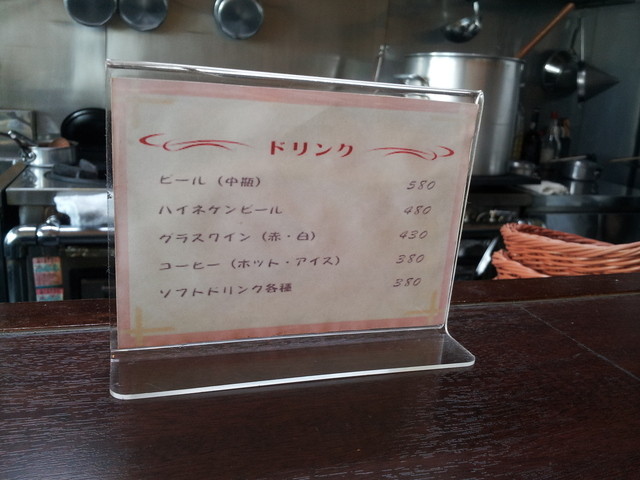 ドリンク
ビール（中瓶） 580
ハイネケンビール 480
グラスワイン（赤・白） 430
コーヒー（ホット・アイス） 380
ソフトドリンク各種 380